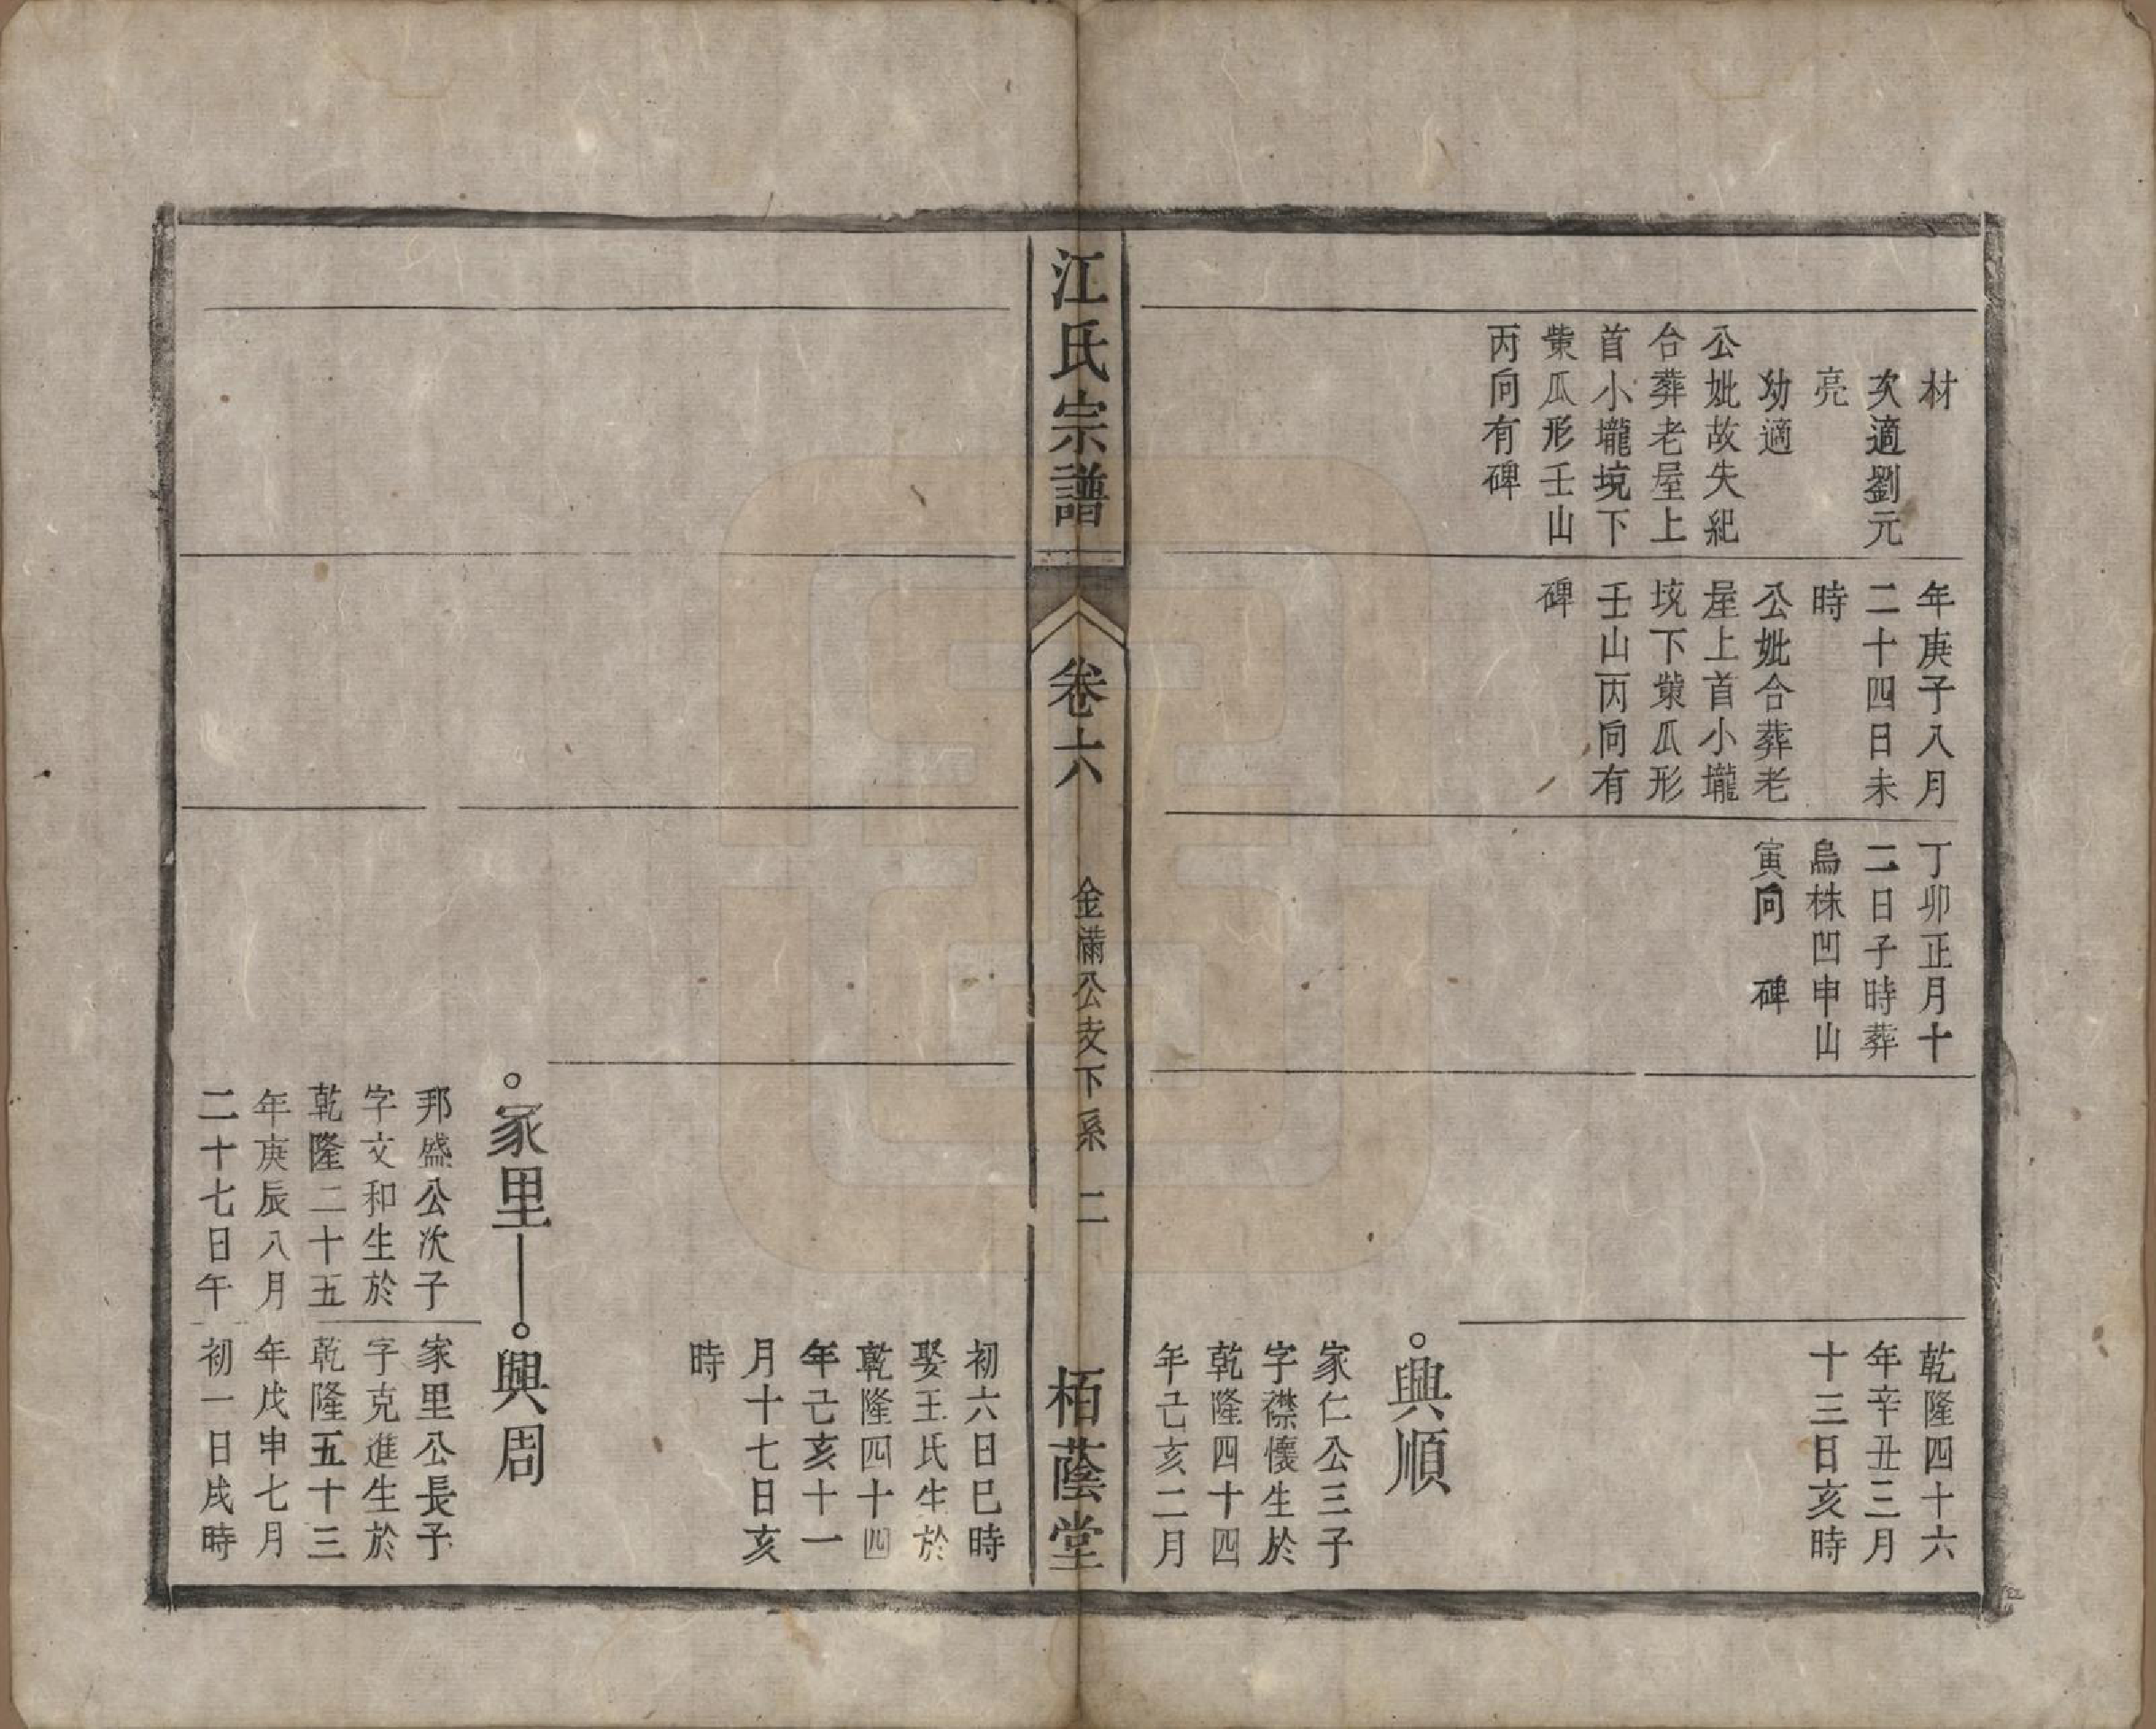 材
次適劉元
亮
幼適
公妣故失紀
合葬老屋上
首小壠境下
𮎰瓜形壬山
丙向有碑
年庚子八月
二十四日未
時
公妣合葬老
屋上首小壠
境下𮎰瓜形
壬山丙向有
碑
丁卯正月十
二日子時葬
烏株凹申山
寅向 碑
乾隆四十六
年辛丑三月
十三日亥時
興順
家仁公三子
字襟懷生於
乾隆四十四
年己亥二月
江氏宗譜
卷六
金滿公支下系 二
栢蔭堂
初六日巳時
娶王氏生於
乾隆四十四
年己亥十一
月十七日亥
時
家里
興周
邦盛公次子
字文和生於
乾隆二十五
年庚辰八月
二十七日午
家里公長子
字克進生於
乾隆五十三
年戊申七月
初一日戌時